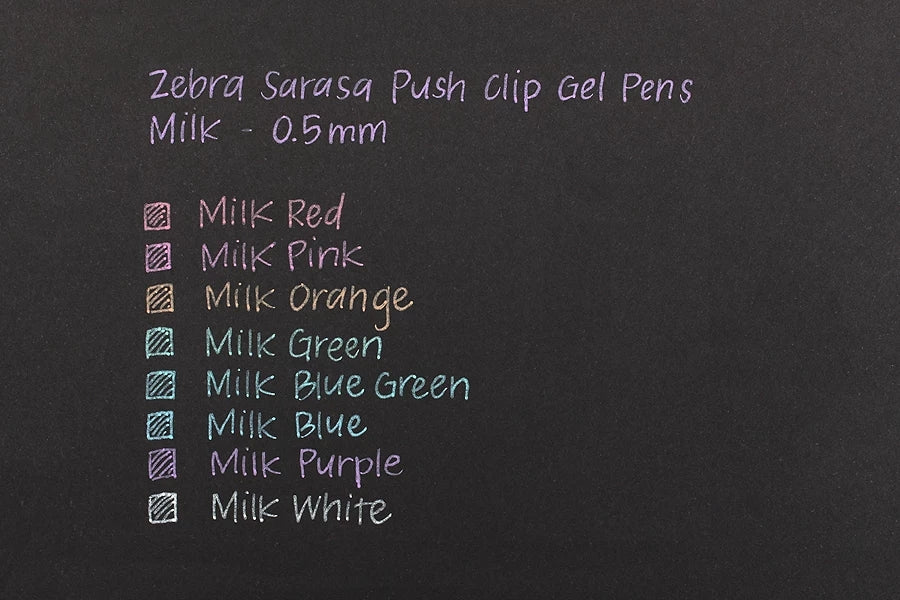 Zebra Sarasa Push Clip Gel Pens
Milk - 0.5mm
Milk Red
Milk Pink
Milk Orange
Milk Green
Milk Blue Green
Milk Blue
Milk Purple
Milk White